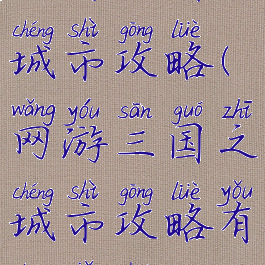 chéng shì gōng lüè
城市攻略(
wǎng yóu sān guó zhī
网游三国之
chéng shì gōng lüè yǒu
城市攻略有